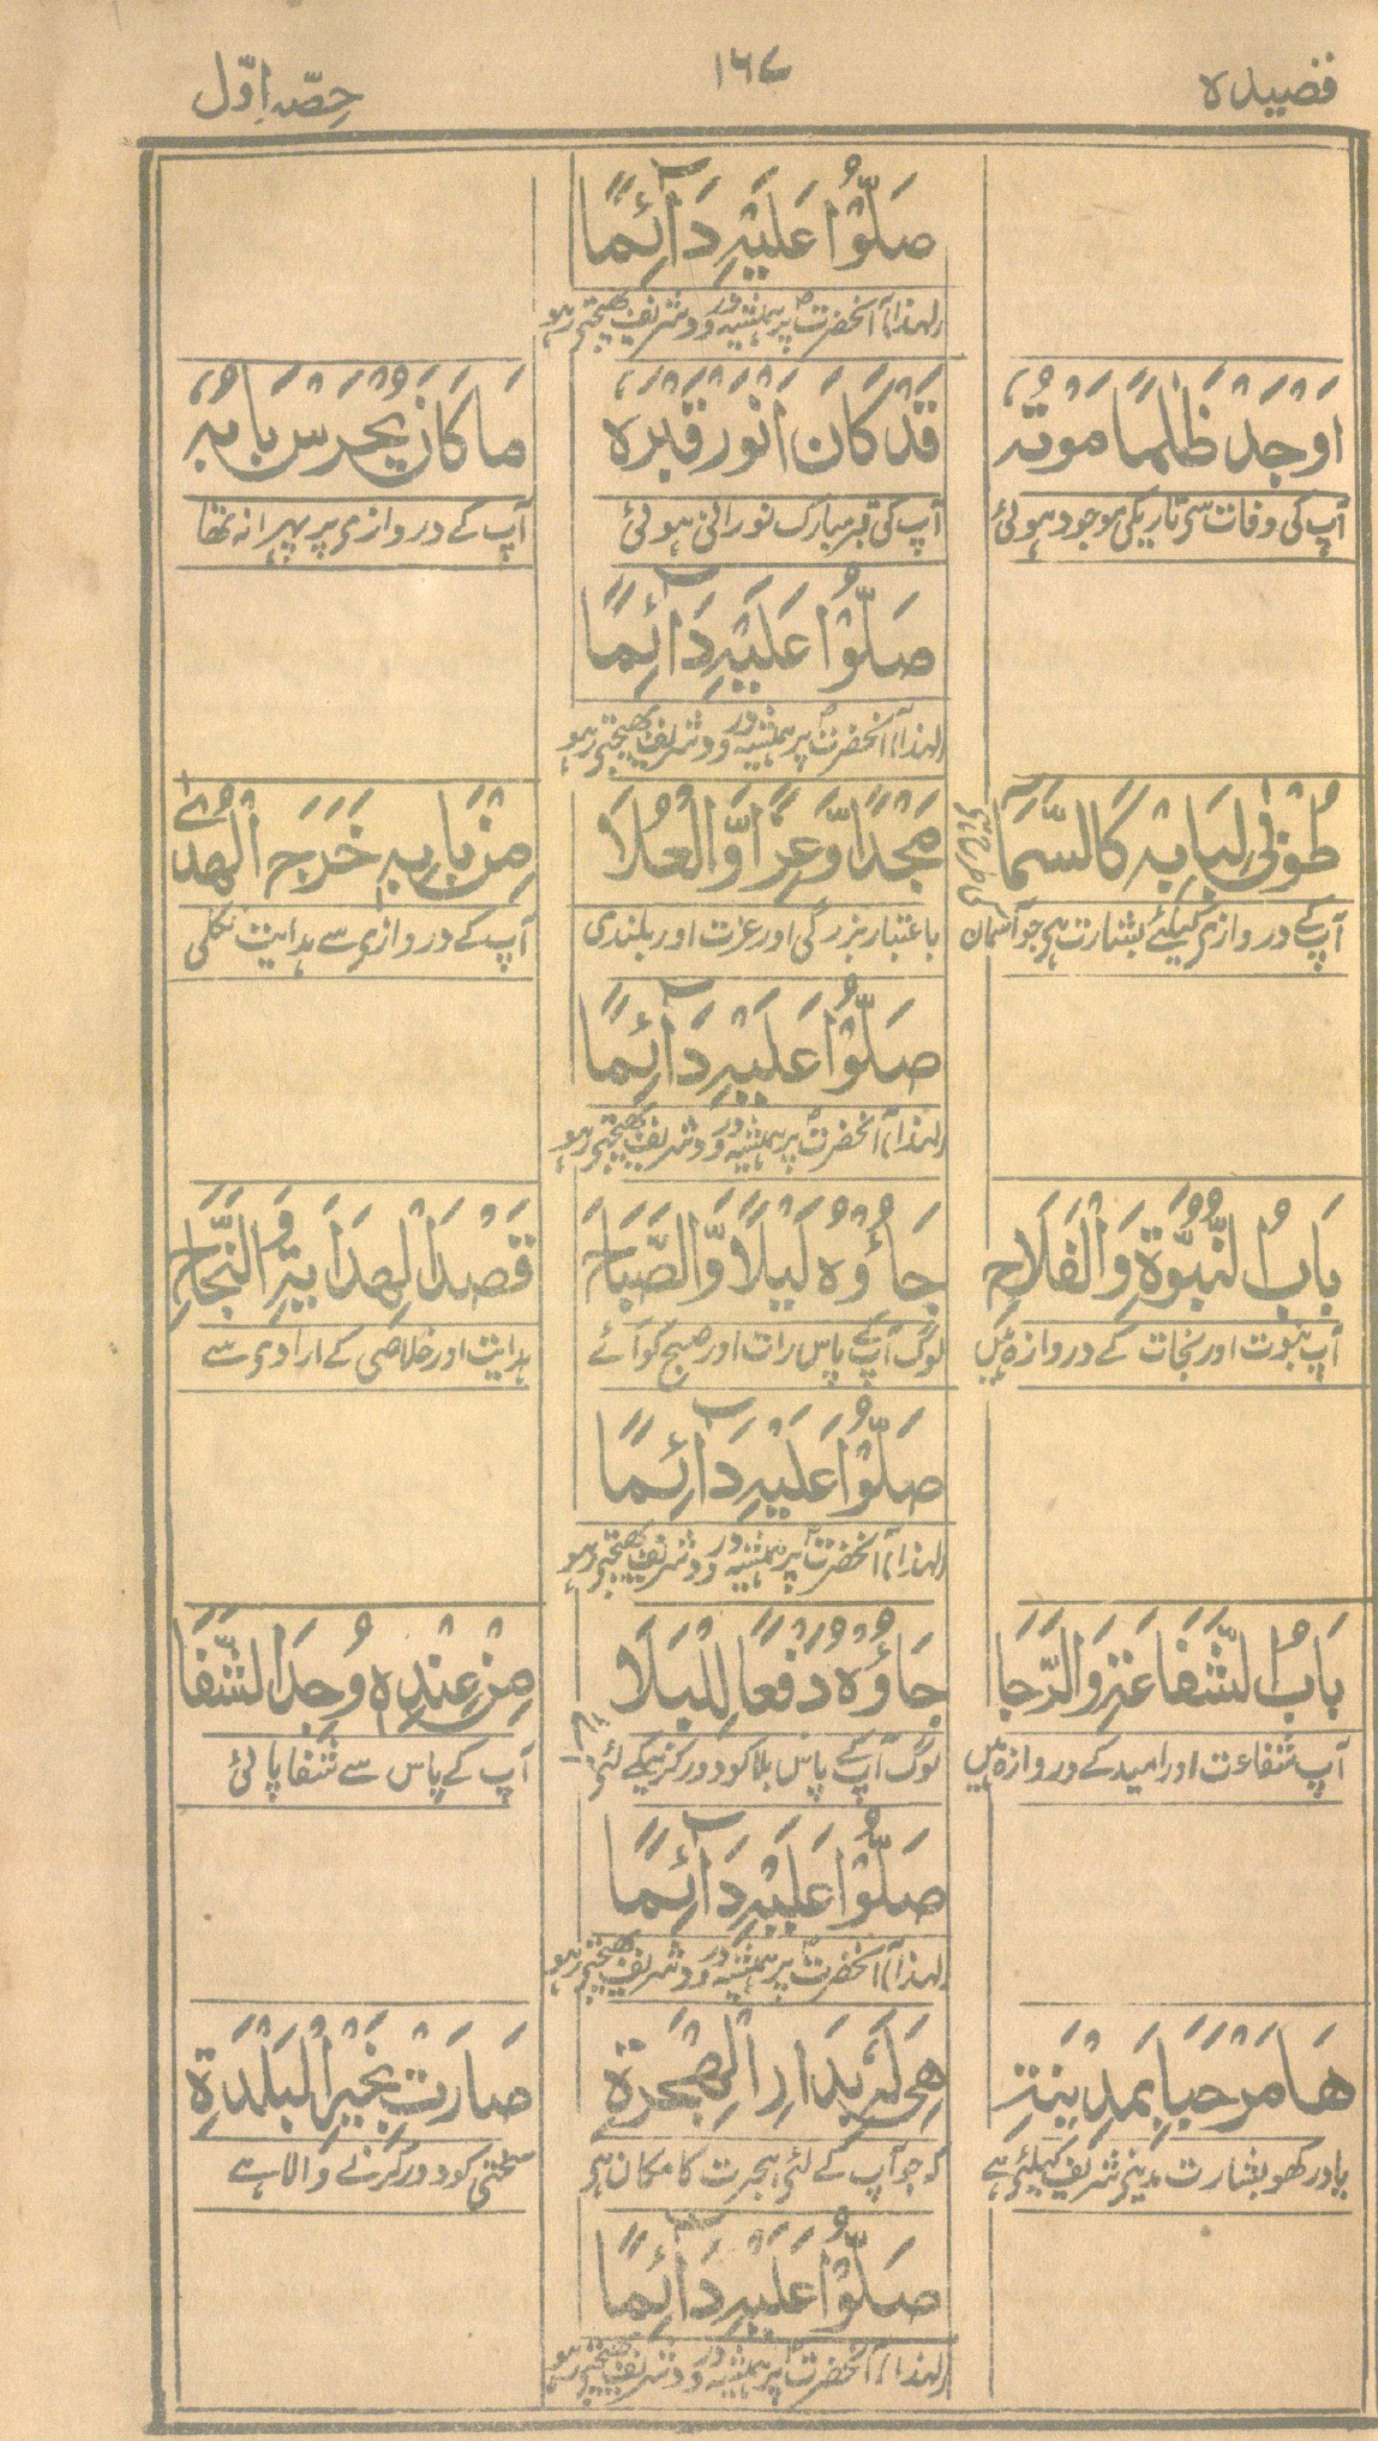 قصیدہ
۱۶۷
حِصّہ اوّل
صَلُّوْا عَلَیْہِ دَآئِمًا
لہٰذا آنحضرتؐ پر ہمیشہ درود شریف بھیجتے رہو
اَوْجَدْ ظَلَمًا مَوْتُہٗ
قَدْ کَانَ اَنْوَرْ قَبْرُہٗ
مَا کَانَ یُحْرَسْ بَابُہٗ
آپ کی وفات سے تاریکی موجود ہوئی
آپ کی قبر مبارک نورانی ہوئی
آپ کے دروازے پر پہرا نہ تھا
صَلُّوْا عَلَیْہِ دَآئِمًا
لہٰذا آنحضرتؐ پر ہمیشہ درود شریف بھیجتے رہو
طُوْبٰی لِبَابِہٖ کَالسَّمَآ
مَجْدًا وَّعِزًّا وَّالْعُلَا
مِنْ بَابِہٖ خَرَجَ الْھُدٰے
آپ کے دروازے کیلئے بشارت ہے جو آسمان
باعتبار بزرگی اور عزت اور بلندی
آپ کے دروازے سے ہدایت نکلی
صَلُّوْا عَلَیْہِ دَآئِمًا
لہٰذا آنحضرتؐ پر ہمیشہ درود شریف بھیجتے رہو
بَابُ النُّبُوَّۃِ وَالْفَلَاحِ
جَاؤُہُ لَیْلًا وَّالصَّبَاحَ
قَصْدَ الْھِدَایَۃِ وَالنَّجَاحِ
آپ نبوت اور نجات کے دروازہ ہیں
لوگ آپ کے پاس رات اور صبح کو آئے
ہدایت اور خلاصی کے ارادے سے
صَلُّوْا عَلَیْہِ دَآئِمًا
لہٰذا آنحضرتؐ پر ہمیشہ درود شریف بھیجتے رہو
بَابُ الشَّفَاعَۃِ وَالرَّجَا
جَاؤُہُ دَفْعًا لِلْبَلَا
مِنْ عِنْدِہٖ وُجِدَ الشِّفَا
آپ شفاعت اور امید کے دروازہ ہیں
لوگ آپ کے پاس بلا کو دور کرنیکے لئے آئے
آپ کے پاس سے شفا پائی
صَلُّوْا عَلَیْہِ دَآئِمًا
لہٰذا آنحضرتؐ پر ہمیشہ درود شریف بھیجتے رہو
ھَا مَرْحَبَا بِمَدِیْنَۃِ
ھِیَ لَہٗ بِدَارِ الْھِجْرَۃِ
صَارَتْ بِخَیْرِ الْبَلْدَۃِ
یاد رکھو بشارت مدینہ شریف کیلئے ہے
کہ جو آپ کے لئے ہجرت کا مکان ہے
سختی کو دور کرنے والا ہے
صَلُّوْا عَلَیْہِ دَآئِمًا
لہٰذا آنحضرتؐ پر ہمیشہ درود شریف بھیجتے رہو